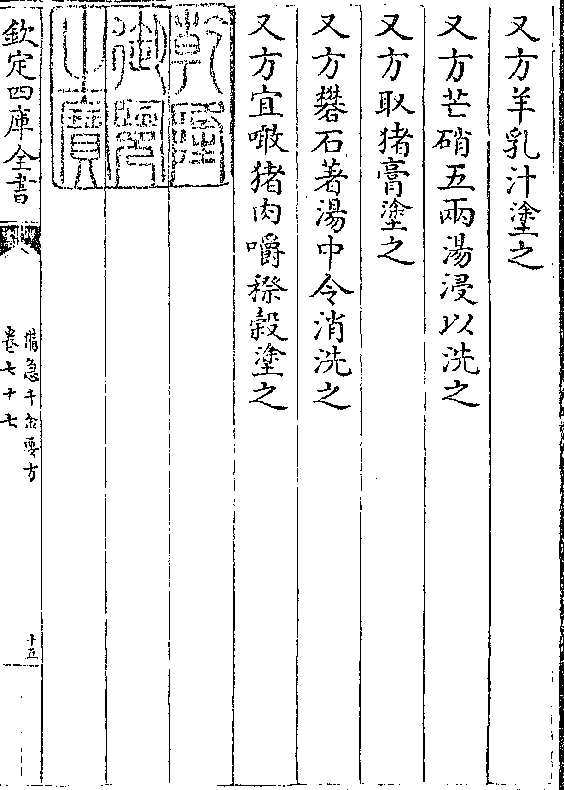 又方羊乳汁塗之
又方芒硝五兩湯浸以洗之
又方取猪膏塗之
又方礬石著湯中令消洗之
又方宜噉猪肉嚼稌穀塗之
乾隆
御覽
之寶
欽定四庫全書
備急千金要方
卷七十七
十五